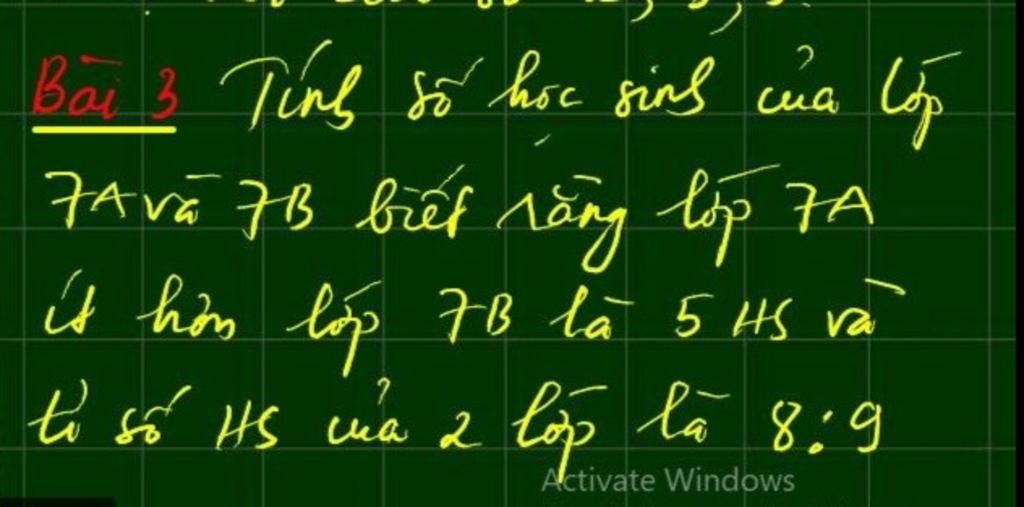 Bài 3 Tính số học sinh của lớp
7A và 7B biết rằng lớp 7A
ít hơn lớp 7B là 5 HS và
tỉ số HS của 2 lớp là 8:9
Activate Windows